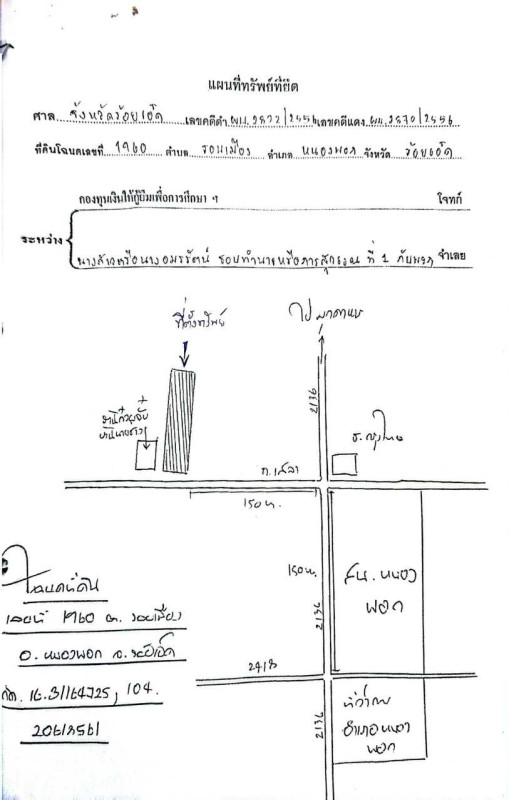 แผนที่ทรัพย์ที่ยึด
ศาล จังหวัดร้อยเอ็ด เลขคดีดำ ผบ.2822/2556 เลขคดีแดง ผบ.2870/2556
ที่ดินโฉนดเลขที่ 1960 ตำบล รอบเมือง อำเภอ หนองพอก จังหวัด ร้อยเอ็ด
กองทุนเงินให้กู้ยืมเพื่อการศึกษา ฯ โจทก์
ระหว่าง
นางสาวหรือนางอมรรัตน์ หรือ ที่ 1 กับพวก จำเลย
ที่ตั้งทรัพย์
ไป มุกดาหาร
2136
ธ.กรุงไทย
150 ม.
150 ม.
สน. หนอง
พอก
2136
2418
ที่ว่าการ
อำเภอหนอง
พอก
2136
โฉนดที่ดิน
เลขที่ 1960 ต. รอบเมือง
อ. หนองพอก จ. ร้อยเอ็ด
16.3164725, 104.
2061856